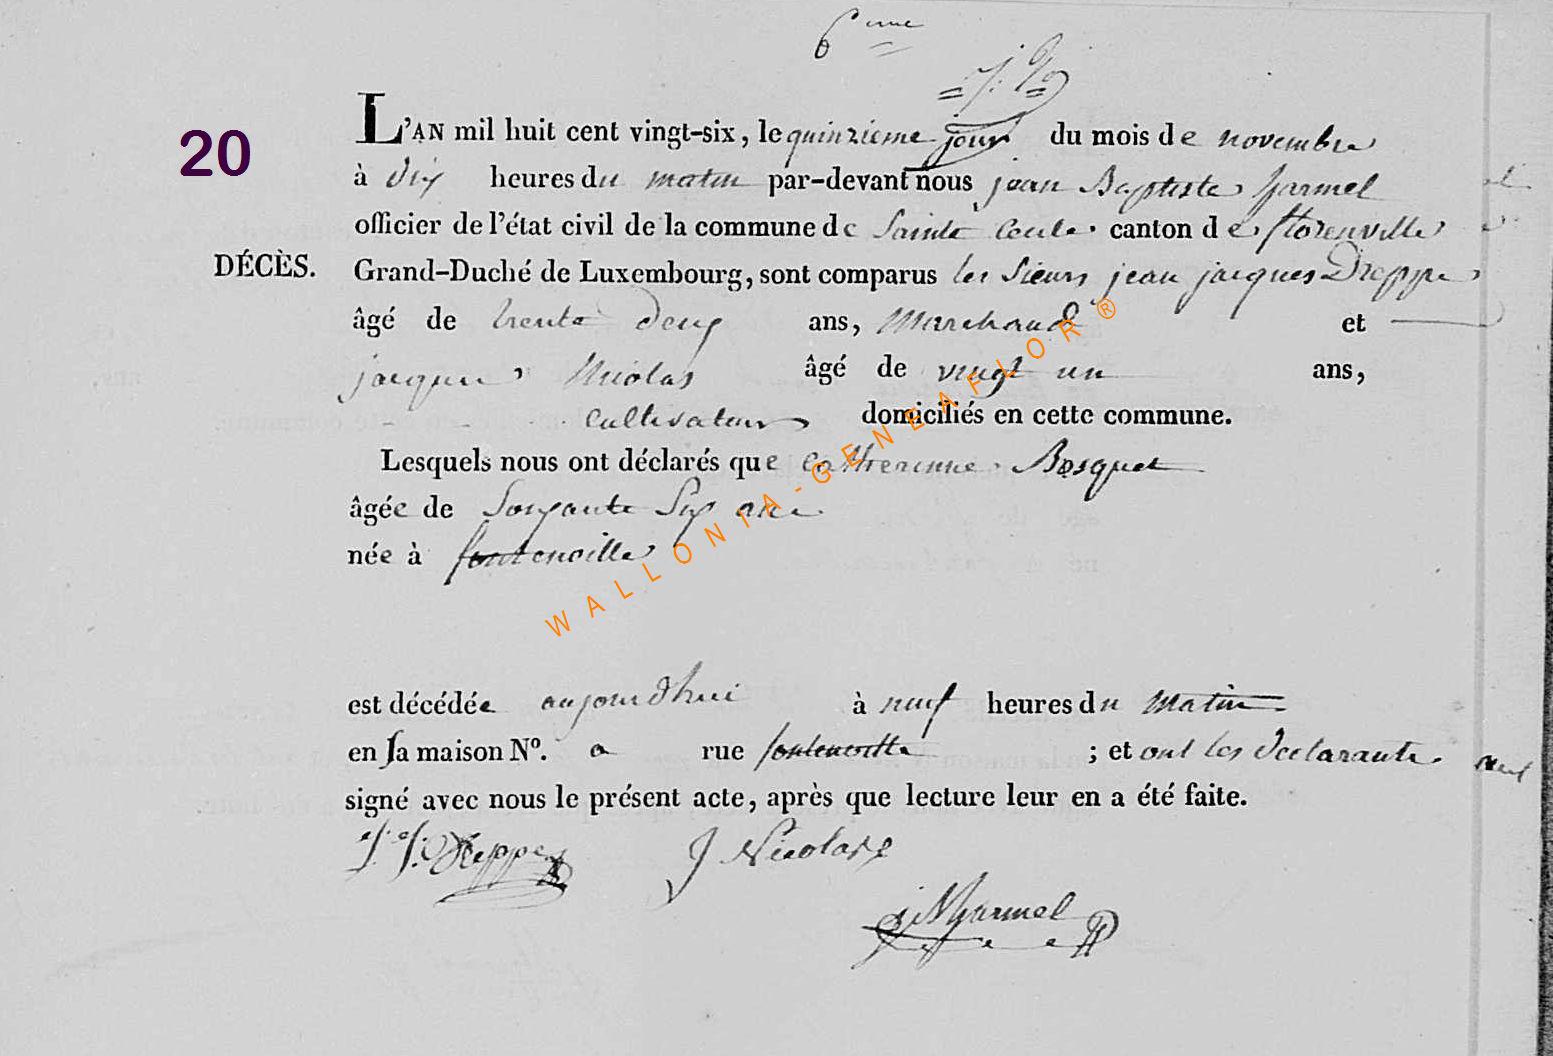 6eme
20
L'AN mil huit cent vingt-six, le quinzieme jour du mois de novembre
à dix heures du matin par-devant nous jean Baptiste harmel
officier de l'état civil de la commune de Sainte Cecile canton de florenville
DÉCÈS. Grand-Duché de Luxembourg, sont comparus les Sieurs jean jacques Dreppe
âgé de trente deux ans, Marchand et
jacques Nicolas âgé de vingt un ans,
cultivateur domiciliés en cette commune.
Lesquels nous ont déclarés que catherinne Bosquet
âgée de Soixante Six ans
née à fontenoille
est décédée aujourdhui à neuf heures du Matin
en sa maison Nº. a rue fontenoille ; et ont les declarants
signé avec nous le présent acte, après que lecture leur en a été faite.
J. J. Dreppe J Nicolas
harmel
WALLONIA-GENEAFLOR®